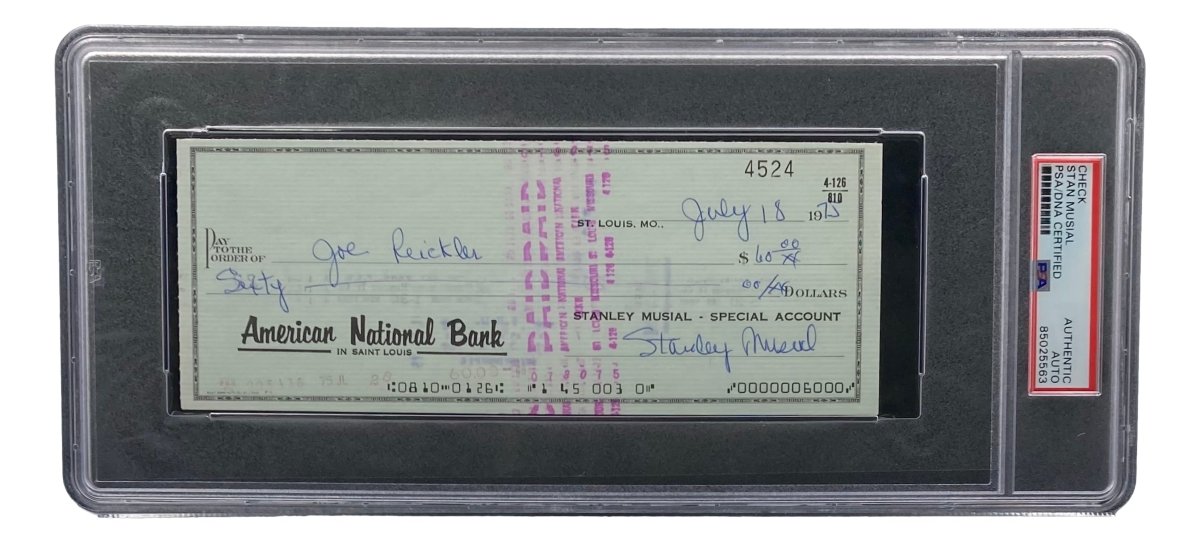 4524
4-126
810
ST. LOUIS, MO., July 18 1975
PAY
TO THE
ORDER OF Joe Reichler $ 60 00/XX
Sixty 00/XX DOLLARS
STANLEY MUSIAL - SPECIAL ACCOUNT
American National Bank
IN SAINT LOUIS
Stanley Musial
⑆0810⑉0126⑆ ⑈1 45 003 0⑈ ⑈0000006000⑈
PAID
CHECK
STAN MUSIAL
PSA/DNA CERTIFIED
PSA
AUTHENTIC
AUTO
85025563